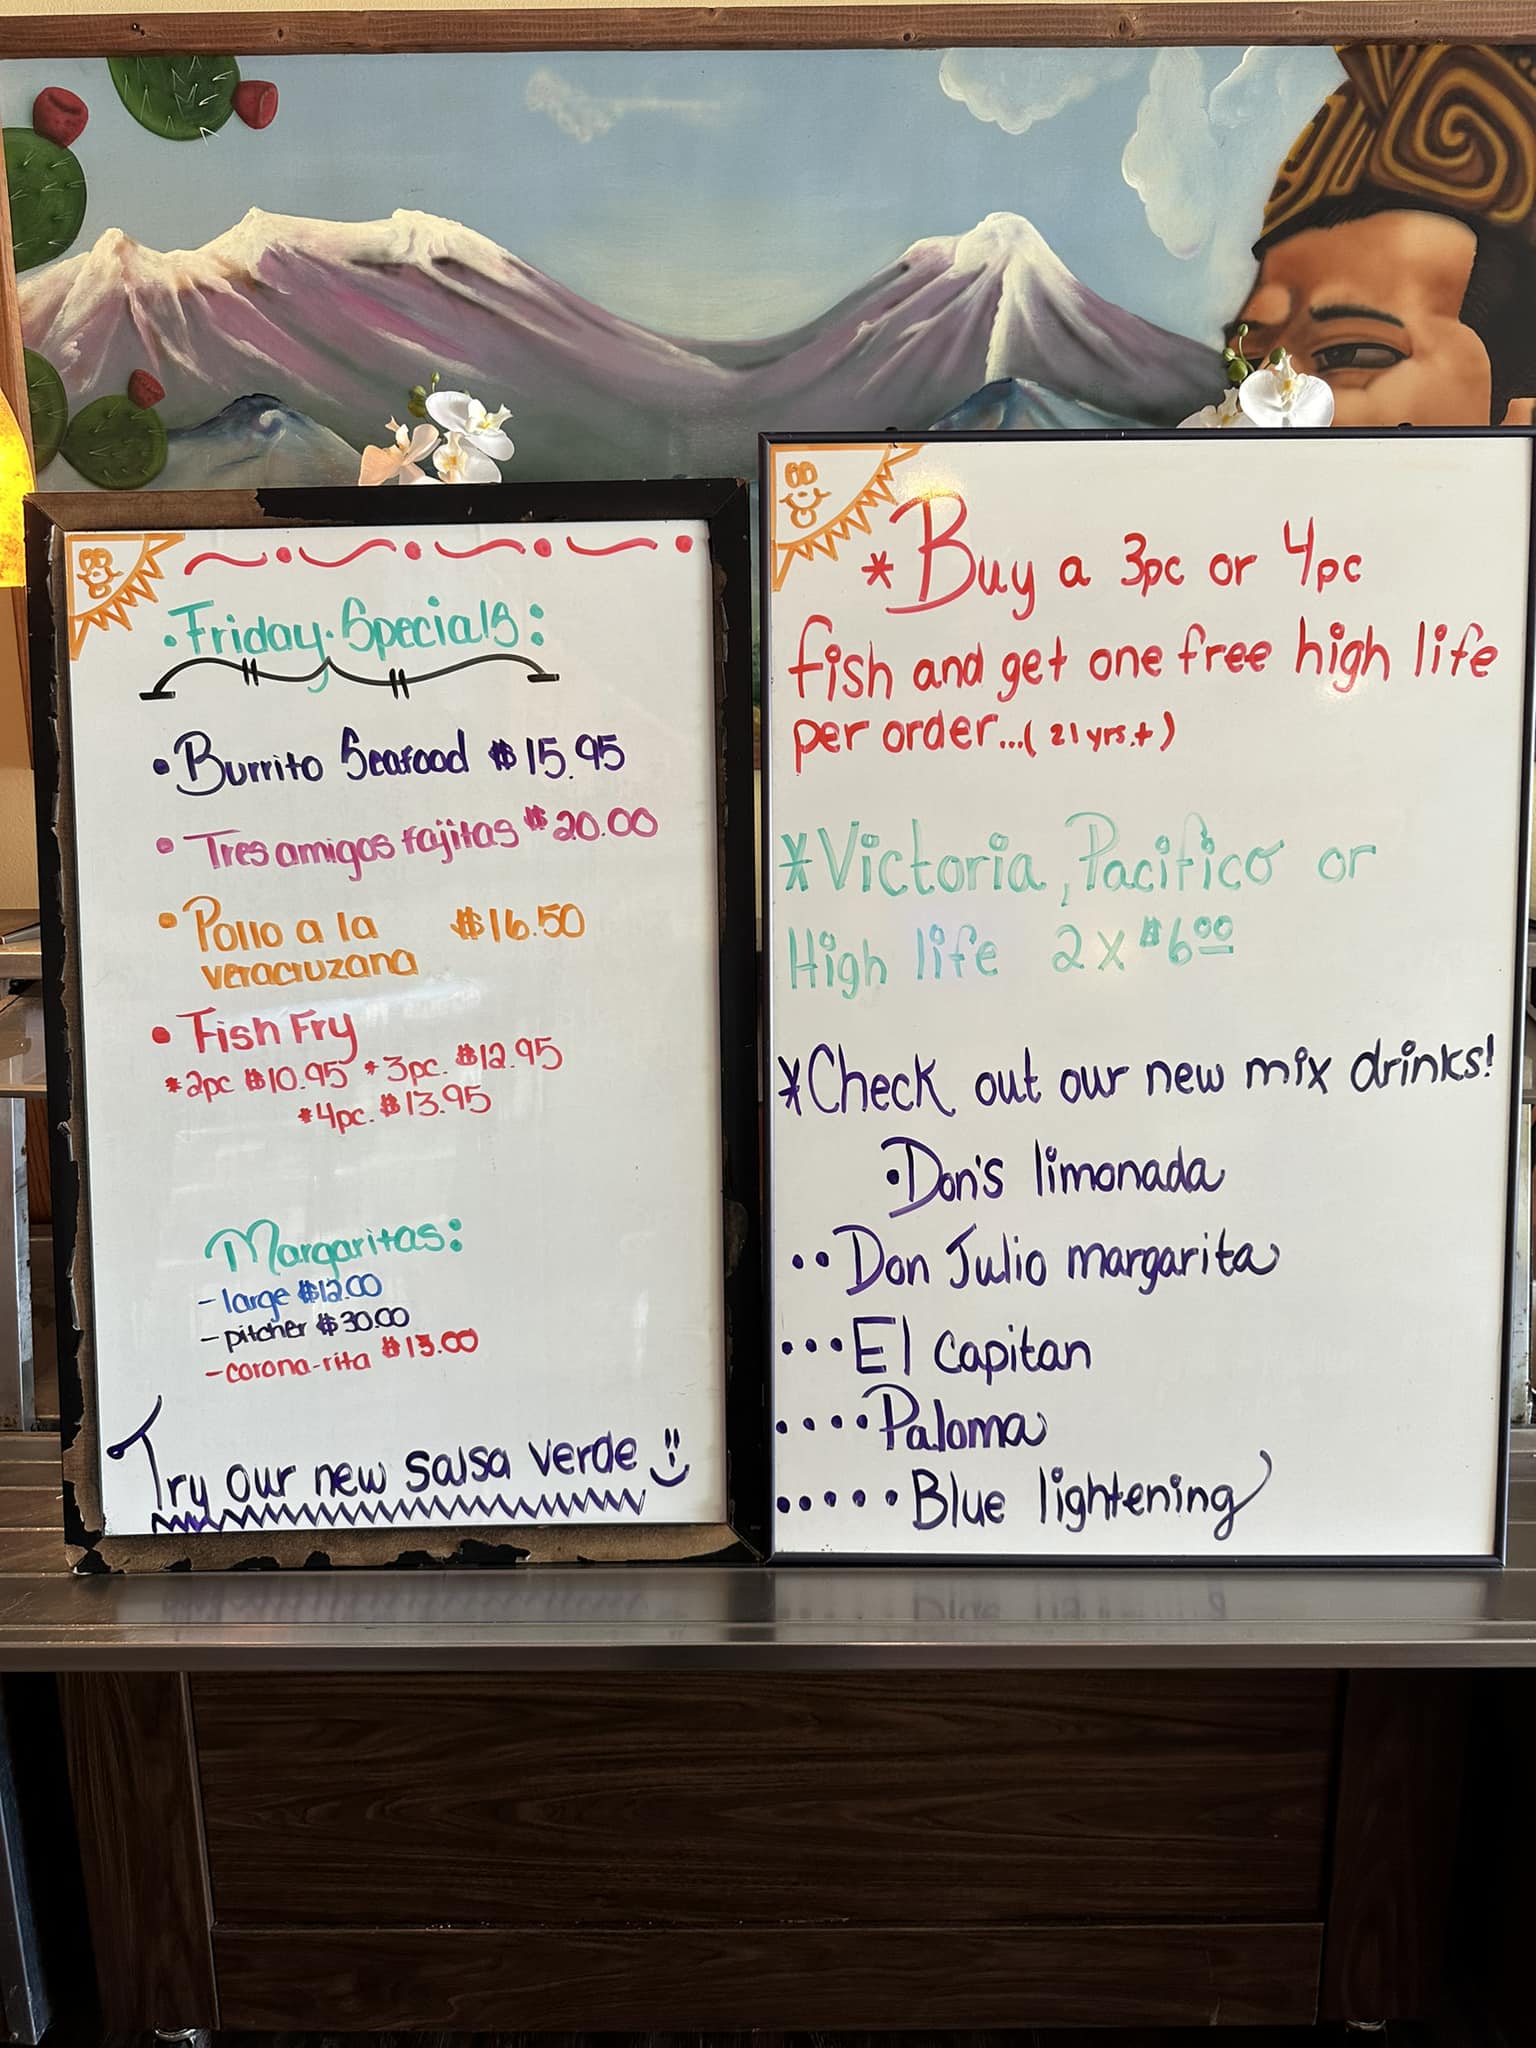 .Friday. Specials:
• Burrito Seafood $15.95
• Tres amigos fajitas $20.00
• Pollo a la $16.50
veracruzana
• Fish Fry
*2pc $10.95 *3pc. $12.95
*4pc. $13.95
Margaritas:
- large $12.00
- pitcher $30.00
- corona-rita $13.00
Try our new salsa verde
* Buy a 3pc or 4pc
fish and get one free high life
per order...(21 yrs.+)
*Victoria, Pacifico or
High life 2 x $6.00
*Check out our new mix drinks!
•Don's limonada
••Don Julio margarita
•••El Capitan
••••Paloma
•••••Blue lightening